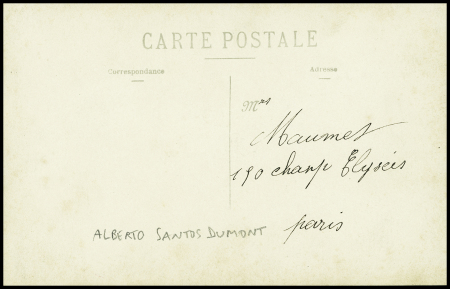 CARTE POSTALE
Correspondance
Adresse
Mrs
Maumet
190 champ Elyséis
paris
ALBERTO SANTOS DUMONT